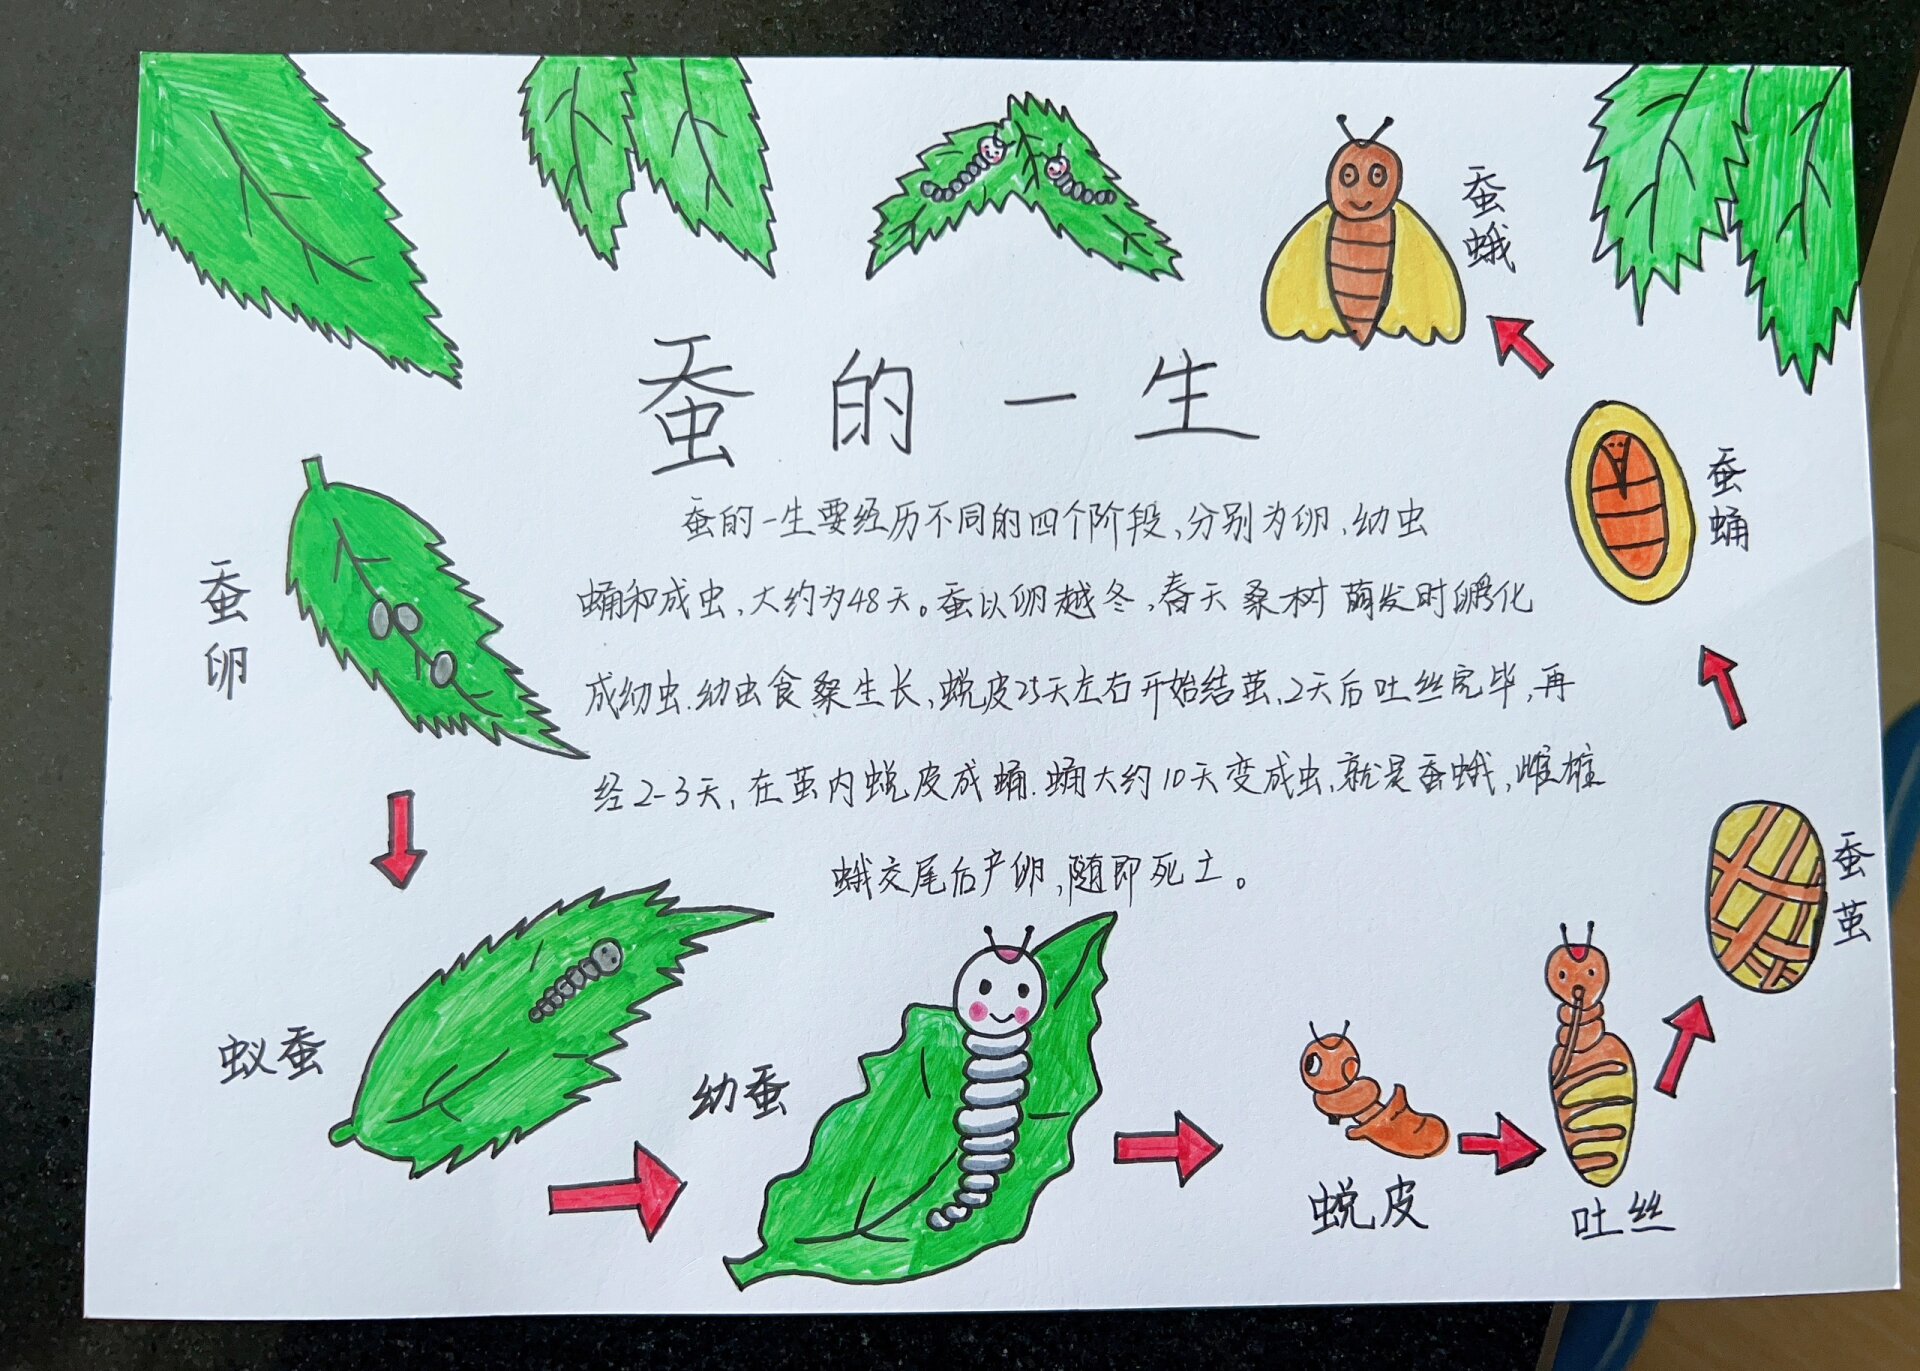 蚕蛾
蚕的一生
蚕的一生要经历不同的四个阶段,分别为卵、幼虫
蛹和成虫,大约为48天。蚕以卵越冬,春天桑树萌发时孵化
成幼虫.幼虫食桑生长,蜕皮25天左右开始结茧,2天后吐丝完毕,再
经2-3天,在茧内蜕皮成蛹.蛹大约10天变成虫,就是蚕蛾,雌雄
蛾交尾后产卵,随即死土。
蚕蛹
蚕卵
蚕茧
蚁蚕
幼蚕
蜕皮
吐丝